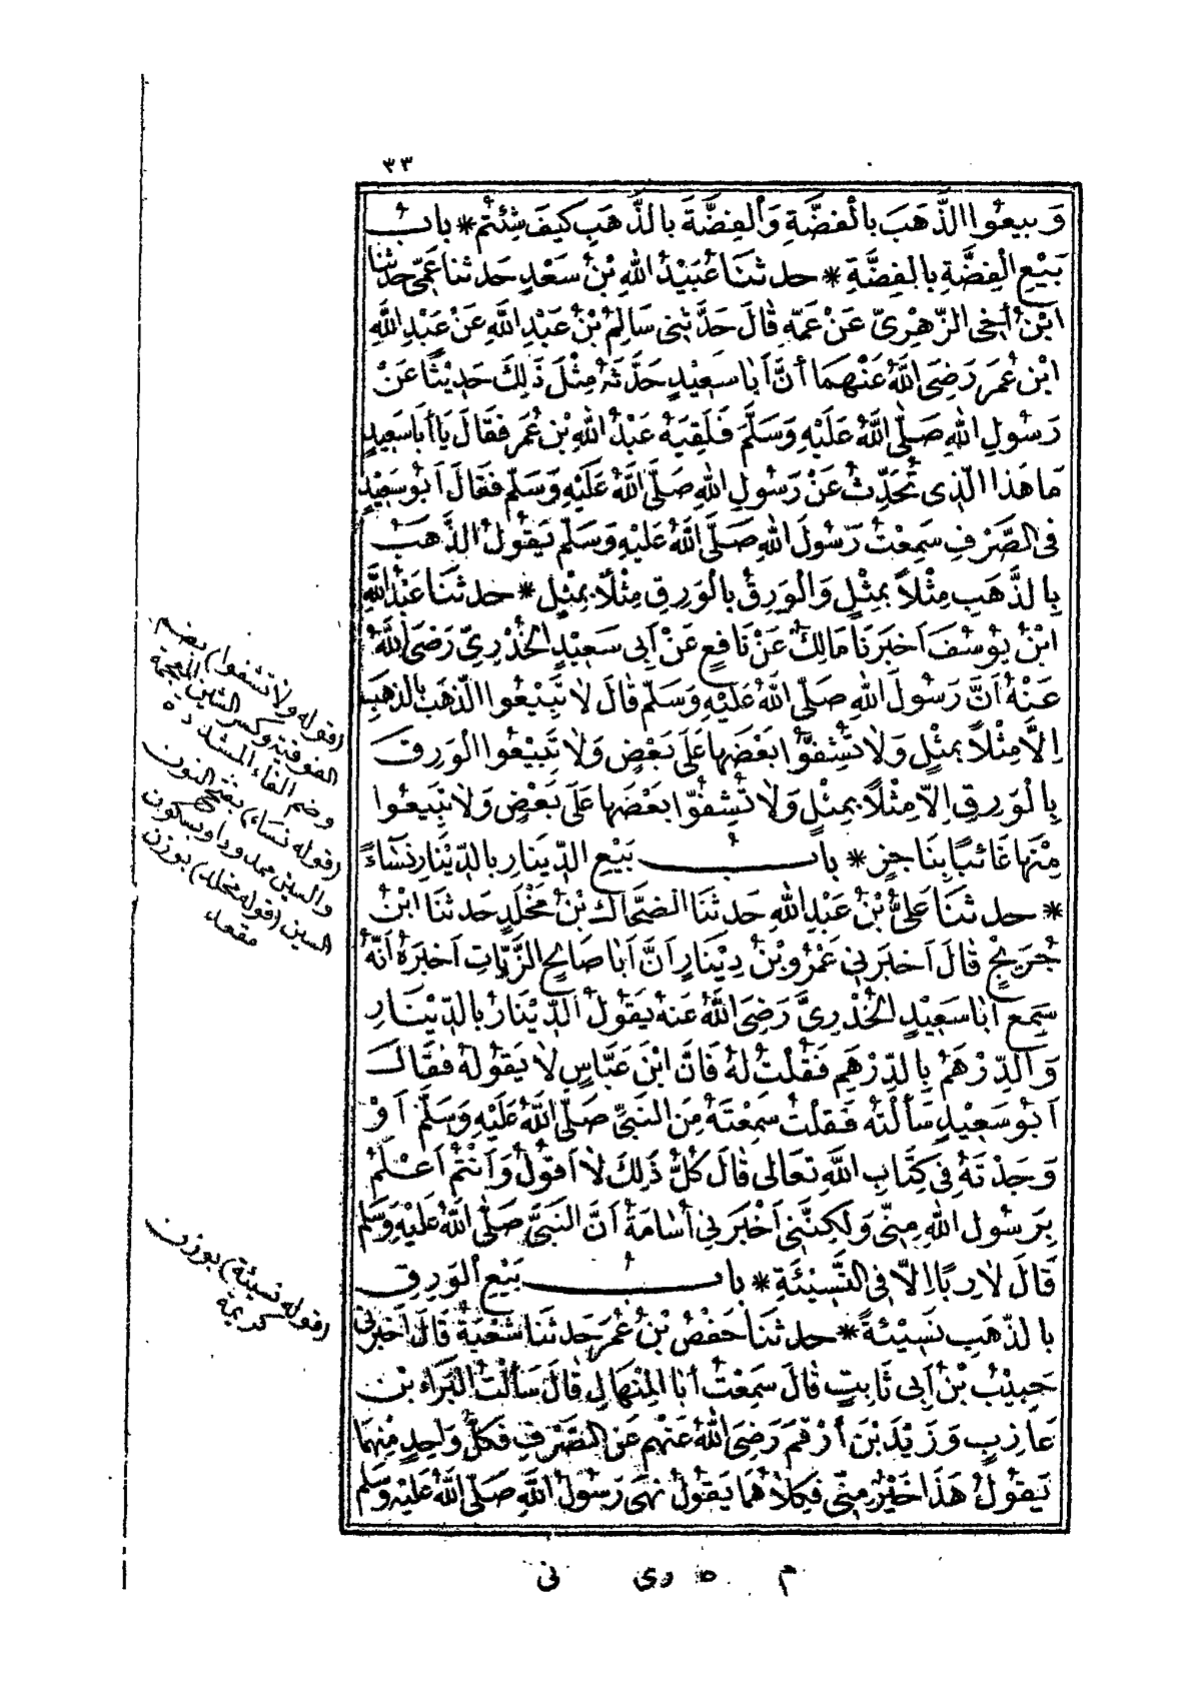 ٣٣
وَبِيعُوا الذَّهَبَ بِالْفِضَّةِ وَالْفِضَّةَ بِالذَّهَبِ كَيْفَ شِئْتُمْ * بابُ
بَيْعِ الْفِضَّةِ بِالْفِضَّةِ * حدثنَا عُبَيْدُ اللهِ بْنُ سَعْدٍ حَدثنا عَمِّى حدثنا
ابْنُ أَخِى الزُّهْرِىِّ عَنْ عَمِّهِ قَالَ حَدَّثَنِى سَالِمُ بْنُ عَبْدِ اللَّهِ عَنْ عَبْدِ اللَّهِ
ابْنِ عُمَرَ رَضِىَ اللَّهُ عَنْهُمَا أنَّ أَبَا سَعِيْدٍ حَدَّثَهُ مِثْلَ ذَلِكَ حَدِيْثًا عَنْ
رَسُولِ اللهِ صَلَّى اللَّهُ عَلَيْهِ وَسَلَّمَ فَلَقِيَهُ عَبْدُ اللهِ بْنُ عُمَرَ فَقَالَ يَا أَبَا سَعِيدٍ
مَا هَذَا الَّذِى تُحَدِّثُ عَنْ رَسُولِ اللهِ صَلَّى اللَّهُ عَلَيْهِ وَسَلَّم فَقَالَ أَبُو سَعِيْدٍ
فِى الصَّرْفِ سَمِعْتُ رَسُولَ اللهِ صَلَّى اللَّهُ عَلَيْهِ وَسَلَّم يَقُولُ الذَّهَبُ
بِالذَّهَبِ مِثْلاً بِمِثْلٍ وَالْوَرِقُ بِالْوَرِقِ مِثْلاً بِمِثْلٍ * حدثنَا عَبْدُ اللَّهِ
ابْنُ يُوسُفَ اَخْبَرَنَا مَالِكٌ عَنْ نَافِعٍ عَنْ اَبِى سَعِيْدٍ الخُدْرِىِّ رَضِىَ اللَّهُ
عَنْهُ اَنَّ رَسُولَ اللهِ صَلَّى اللَّهُ عَلَيْهِ وَسَلَّم قَالَ لاَ تَبِيْعُوا الذَّهَبَ بِالذهَبِ
اِلاَّ مِثْلاً بِمِثْلٍ وَلاَ تُشِفُّوا بَعْضَهَا عَلَى بَعْضٍ وَلاَ تَبِيْعُوا الْوَرِقَ
بِالْوَرِقِ اِلاّ مِثْلاً بِمِثْلٍ وَلاَ تُشِفُّوا بَعْضَهَا عَلَى بَعْضٍ وَلاَ تَبِيعُوا
مِنْهَا غَائبًا بِنَاجِزٍ * بابُ بَيْعِ الدِّينَارِ بِالدِّيْنَارِ نَسَاءً
* حدثنَا عَلِىُّ بْنُ عَبْدِ اللهِ حَدثنَا الضَّحَّاكُ بْنُ مَخْلَدٍ حَدثنَا ابْنُ
جُرَيْجٍ قَالَ اَخبَرَنِى عَمْرُو بْنُ دِيْنَارٍ اَنَّ اَبَا صَالِحٍ الزَّيَّاتِ اَخبَرَهُ اَنَّهُ
سَمِعَ اَبَا سَعِيْدٍ الْخُدْرِىَّ رَضِىَ اللَّهُ عَنْهُ يَقُولُ الدِّيْنَارُ بِالدِّيْنَارِ
وَالدِّرْهَمُ بِالدِّرْهَمِ فَقُلْتُ لَهُ فَاِنَّ ابْنَ عَبَّاسٍ لاَ يَقُولُهُ فَقَالَ
اَبُو سَعِيْدٍ سَأَلْتُهُ فَقُلْتُ سَمِعْتَهُ مِنَ النَّبِىِّ صَلَّى اللَّهُ عَلَيْهِ وَسَلَّمَ اَوْ
وَجَدْتَهُ فِى كِتَابِ اللَّهِ تَعَالَى قَالَ كُلُّ ذَلِكَ لاَ اَقُولُ وَاَنْتُمْ اَعْلَمُ
بِرَسُولِ اللَّهِ مِنِّى وَلَكِنَّنِى اَخْبَرَنِى أُسَامَةُ اَنَّ النَّبِىَّ صَلَّى اللَّهُ عَلَيْهِ وَسَلَّم
قَالَ لاَ رِبًا اِلاَّ فِى النَّسِيْئَةِ * بابُ بَيْعِ الْوَرِقِ
بِالذَّهَبِ نَسِيْئَةً * حدثنَا حَفْصُ بْنُ عُمَرَ حَدثنَا شُعْبَةُ قَالَ اَخْبَرَنِى
حَبِيْبُ بْنُ اَبِى ثَابِتٍ قَالَ سَمِعْتُ اَبَا الْمِنْهَالِ قَالَ سَأَلْتُ الْبَرَاءَ بْنَ
عَازِبٍ وَزَيْدَ بْنَ أَرْقَمَ رَضِىَ اللَّهُ عَنْهُم عَنِ الصَّرْفِ فَكُلُّ وَاحِدٍ مِنْهُمَا
يَقُولُ هَذَا خَيْرٌ مِنِّى فَكِلاَهُمَا يَقُولُ نَهَى رَسُولُ اللَّهِ صَلَّى اللَّهُ عَلَيْهِ وَسَلَّم
(قوله ولا تشفوا) بضم
الفوقية وكسر الشين المعجمة
وضم الفاء المشددة ه
(قوله نساء) بفتح النون
والسين ممدودا وبسكون
السين (قوله مخلد) بوزن
مقعد
(قوله نسيئة) بوزن
كريمة
م ٥ رى نى